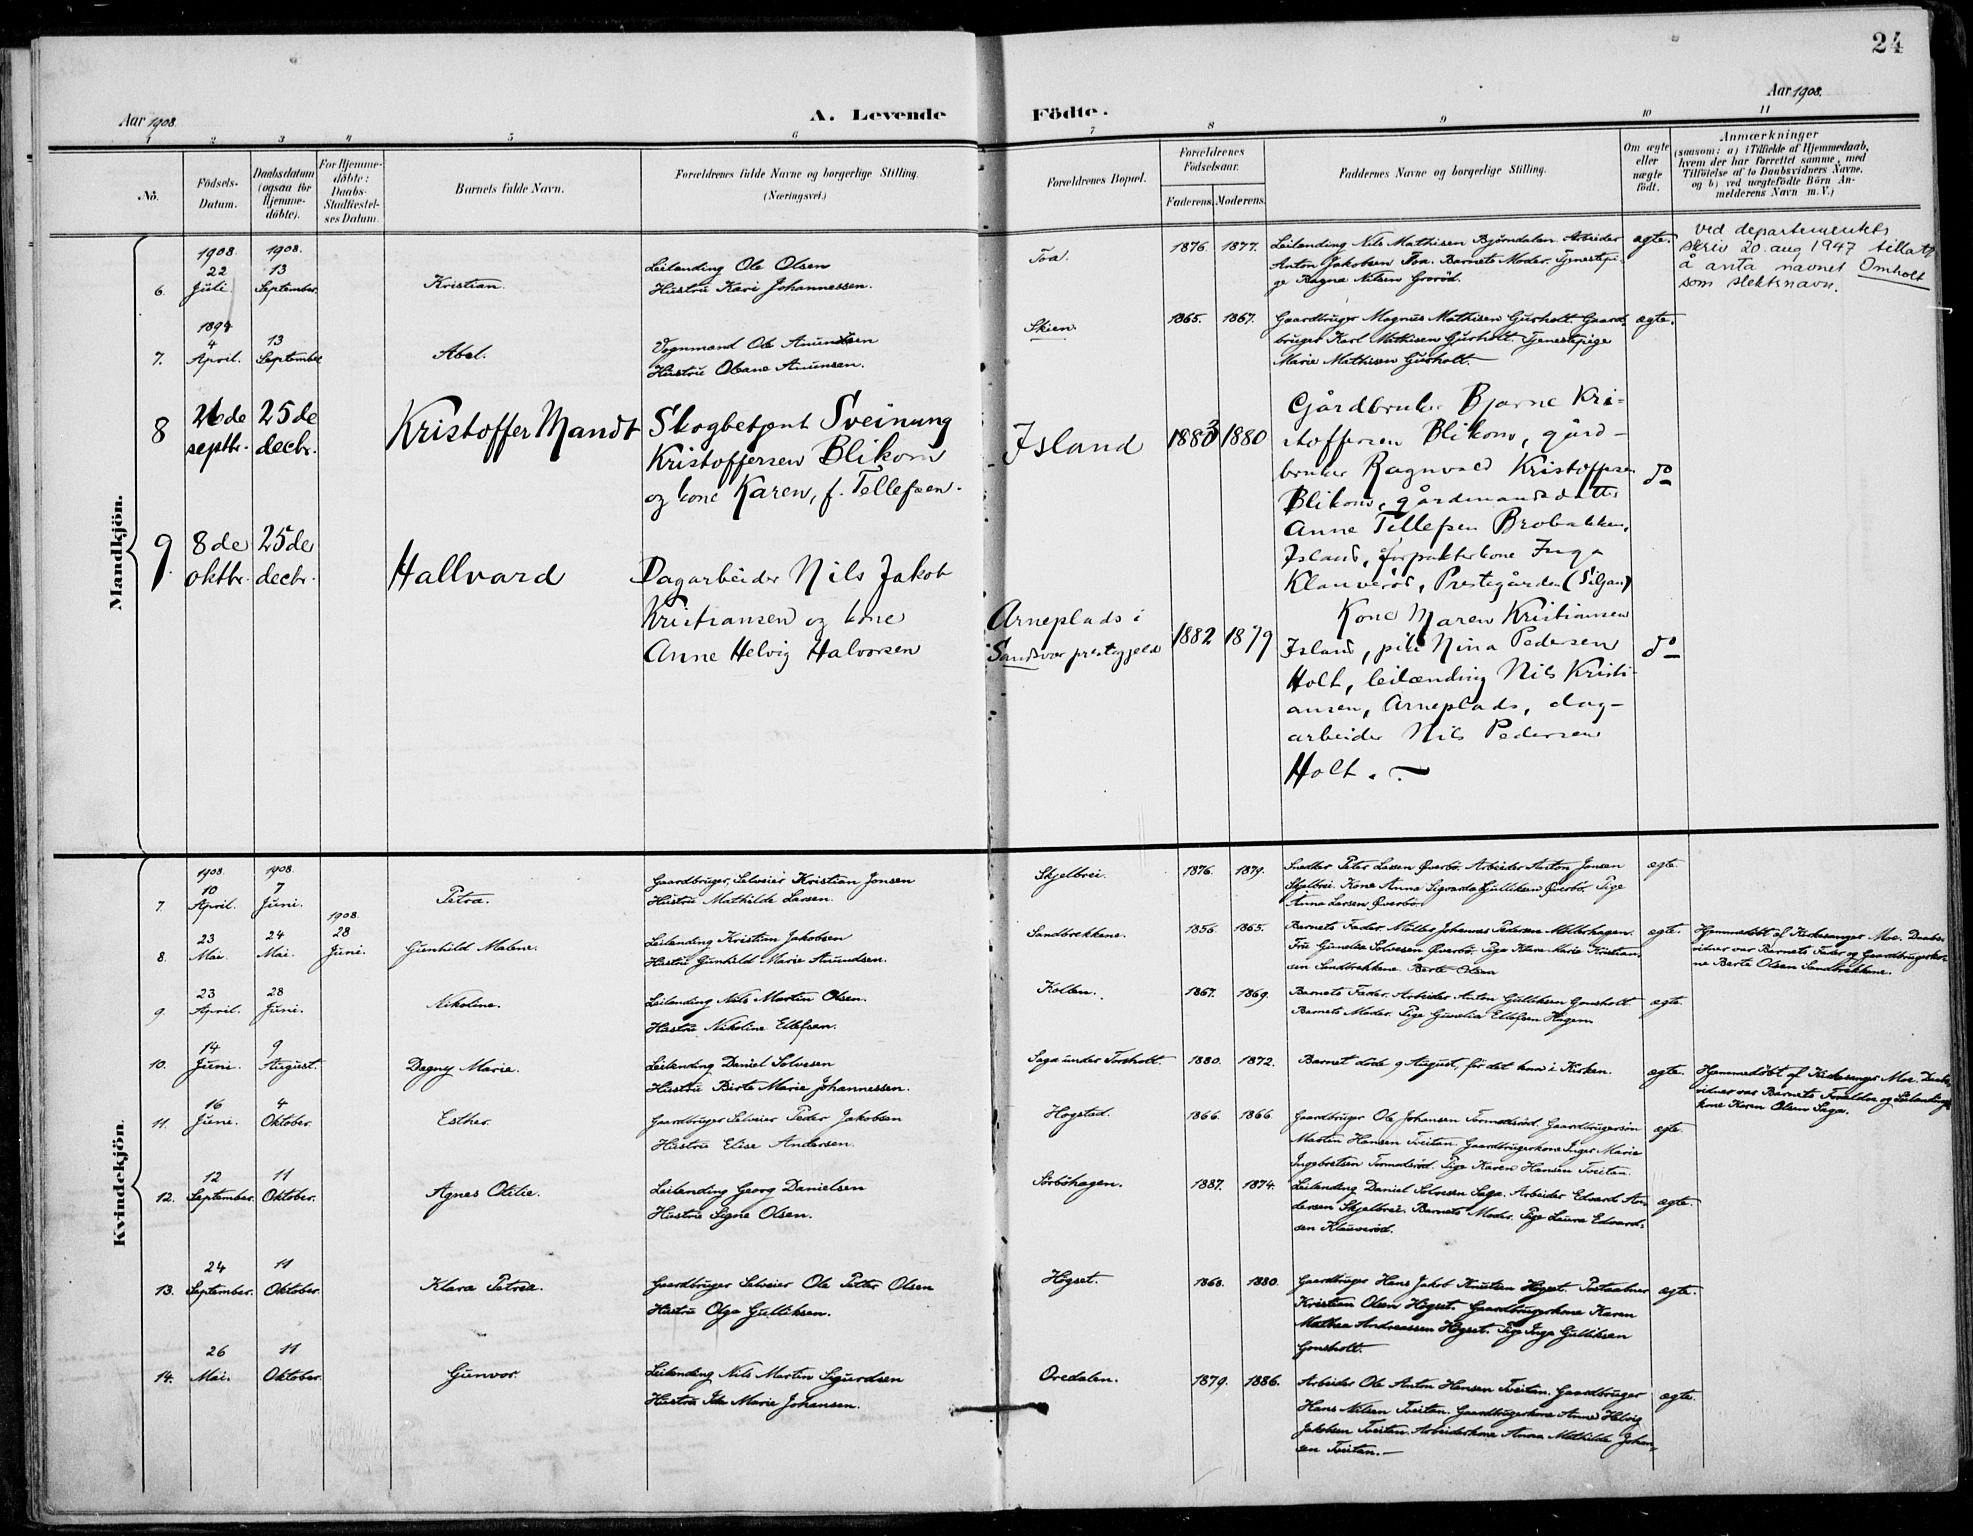 24
Aar 1908.
A. Levende Födte.
Aar 1908.
1 2 3 4 5 6 7 8 9 10 11
No.
Födsels-Datum.
Daabsdatum (ogsaa for Hjemme-döbte).
For Hjemme-döbte: Daabs-Stadfæstel-ses Datum.
Barnets fulde Navn.
Forældrenes fulde Navne og borgerlige Stilling.
(Næringsvei.)
Forældrenes Bopæl.
Forældrenes Födselsaar.
Faderens. Moderens.
Faddernes Navne og borgerlige Stilling.
Om ægte eller uægte födt.
Anmærkninger
(saasom: a) i Tilfælde af Hjemmedaab,
hvem der har forrettet samme, med
Tilföielse af to Daabsvidners Navne,
og b) ved uægtefödte Börn An-
melderens Navn m. V.)
Mandkjön.
6.
1908.
22
Juli
1908.
13
September.
Kristian.
Leilending Ole Olsen
Hustru Kari Johannessen.
Tva.
1876. 1877.
Leilending Nils Mathisen Bjørndalen. Arbeider
Anton Jakobsen Tva. Barnets Moder. Tjenestepi-
ge Ragna Nilsen Grorød.
ægte.
ved departementets
skriv 20. aug 1947 tillatt
å anta navnet Omholt
som slektsnavn.
7.
1894
4
April.
13
September
Abel.
Vognmand Ole Anundsen
Hustru Obane Anunsen.
Skien.
1865. 1867.
Gaardbruger Magnus Mathisen Gurholt. Gaard-
bruger Karl Mathisen Gurholt. Tjenestepige
Marie Mathisen Gurholt.
ægte.
8
26de
septbr.
25de
decbr.
Kristoffer Mandt
Skogbetjent Sveinung
Kristoffersen Blikom
og kone Karen, f. Tellefsen.
Island
1883 1880
Gårdbruker Bjarne Kri-
stoffersen Blikom, gård-
bruker Ragnvald Kristoffersen
Blikom, gårdmandsdatter
Anne Tellefsen Brobakken,
Island, forpakterkone Inga
Klauverød, Prestegården (Siljan)
do
9.
8de
oktbr.
25de
decbr.
Hallvard
Dagarbeider Nils Jakob
Kristiansen og kone
Anne Helvig Halvorsen
Arneplads i
Sandsvær prestegjeld
1882 1879
Kone Maren Kristiansen
Island, pike Nina Pedersen
Holt, leilænding Nils Kristi-
ansen, Arneplads, dag-
arbeider Nils Pedersen
Holt.
do
Kvindekjön.
7.
1908.
10
April.
1908.
7
Juni.
Petra.
Gaardbruger, Selveier Kristian Jonsen
Hustru Mathilde Larsen.
Skjelbrei.
1876. 1879.
Snedker Peter Larsen Øverbø. Arbeider Anton Jonsen
Skjelbrei. Kone Anna Sigvarda Gulliksen Øverbø. Pige
Anna Larsen Øverbø.
ægte
8.
23
Mai.
24
Mai.
1908.
28
Juni.
Gunhild Malene.
Leilending Kristian Jakobsen
Hustru Gunhild Marie Anundsen.
Sandbrekkene.
1856. 1865.
Barnets Fader. Møller Johannes Pedersen Møllehagen.
Fru Gunelie Solvesen Øverbø. Pige Klara Marie Kristian-
sen Sandbrekkene. Berte Olsen
ægte.
Hjemmedøbt af Kirkesanger Moe. Daabs-
vidner var Barnets Fader og Gaardbrugerko-
ne Berte Olsen Sandbrekkene.
9.
23
April.
28
Juni.
Nikoline.
Leilending Nils Martin Olsen.
Hustru Nikoline Ellefsen.
Kollen.
1867. 1869.
Barnets Fader. Arbeider Anton Gulliksen Gonsholt.
Barnets Moder. Pige Gunelia Ellefsen Hagen
ægte.
10.
14
Juni.
9
August.
Dagny Marie.
Leilending Daniel Solvesen
Hustru Birte Marie Johannessen.
Saga under Torsholt.
1880. 1872.
Barnet døde 9 August, før det kom i Kirken.
ægte.
Hjemmedøbt af Kirkesanger Moe. Daabs-
vidner var Barnets Forældre og Leilendings-
kone Karen Olsen Saga.
11.
16
Juni.
4
Oktober.
Esther.
Gaardbruger Selveier Peder Jakobsen
Hustru Elise Andersen.
Hogstad.
1866. 1866.
Gaardbruger Ole Johansen Tormodsrød. Gaardbrugersøn
Martin Hansen Tveitan. Gaardbrugerkone Inger Marie
Ingebretsen Tormodsrød. Pige Karen Hansen Tveitan.
ægte.
12.
12
September.
11
Oktober.
Agnes Otilie.
Leilending Georg Danielsen
Hustru Signe Olsen.
Sørbøhagen.
1887. 1874.
Leilending Daniel Solvesen Saga. Arbeider Edvard An-
dersen Skjelbrei. Barnets Moder. Pige Laura Edvard-
sen Klauverød.
ægte.
13.
24
September.
11
Oktober.
Klara Petrea.
Gaardbruger Selveier Ole Petter Olsen
Hustru Olga Gulliksen.
Høgset.
1868. 1880.
Gaardbruger Hans Jakob Knutsen Høgset. Postaabner
Kristian Olsen Høgset. Gaardbrugerkone Karen
Mathea Andreassen Høgset. Pige Inga Gulliksen
Gonsholt.
ægte.
14.
26
Mai.
11
Oktober.
Gunvor.
Leilending Nils Martin Sigurdsen
Hustru Ida Marie Johansen.
Oredalen.
1879. 1886.
Arbeider Ole Anton Hansen Tveitan. Gaardbruger
Hans Nilsen Tveitan. Gaardbrugerkone Anne Helvig
Jakobsen Tveitan. Arbeiderkone Anna Mathilde Johan-
sen Tveitan.
ægte.